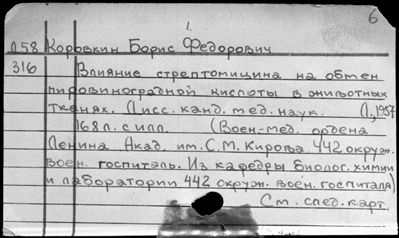 1.
6
Д58 Коровкин Борис Федорович
316 Влияние стрептомицина на обмен
пировиноградной кислоты в животных
тканях. Дисс. канд. мед. наук. Л., 1957
168 л. с илл. (Воен-мед. ордена
Ленина Акад. им. С.М. Кирова. 442 окруж.
воен. госпиталь. Из кафедры биолог. химии
и лаборатории 442 окруж. воен. госпиталя)
См. след. карт.